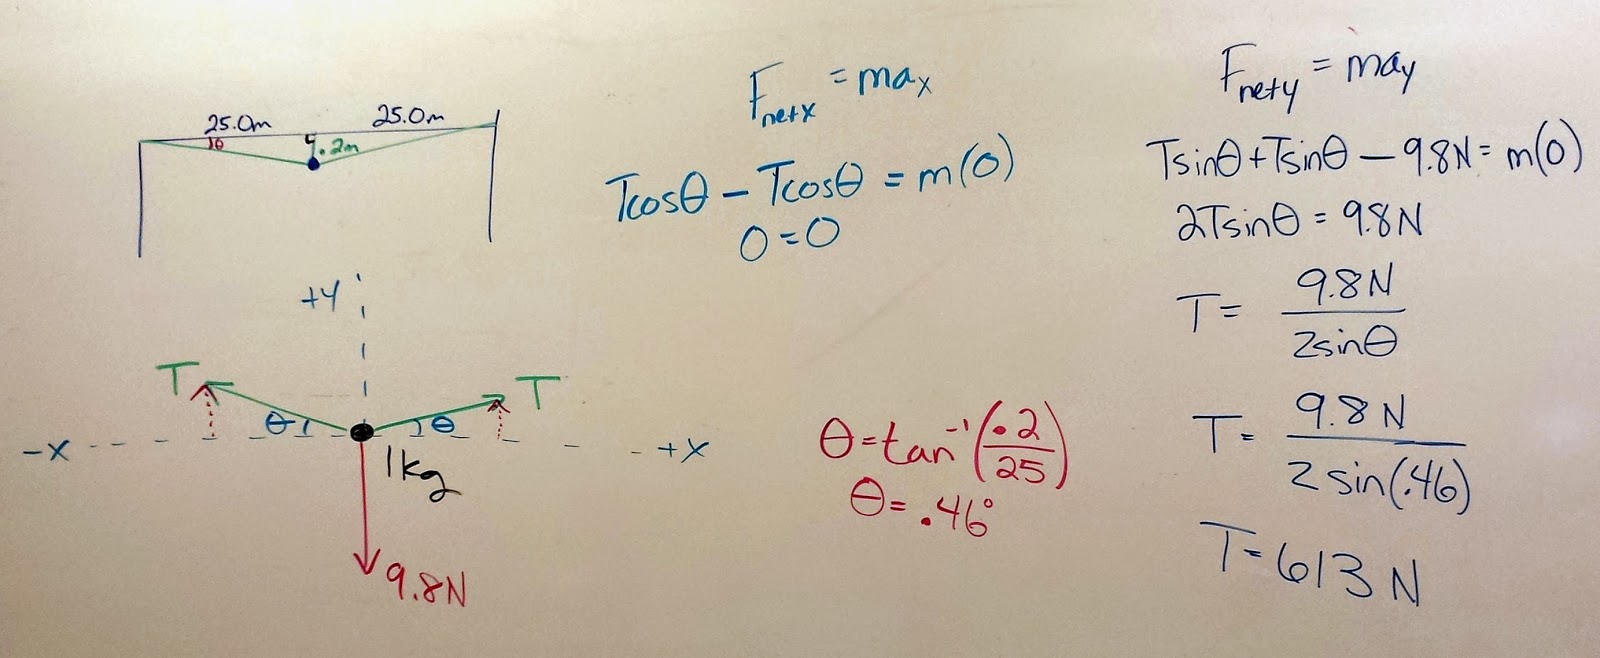 25.0m 25.0m
θ .2m
+Y
T T
θ θ
-X +X
1kg
9.8N
Fnetx = max
Tcosθ - Tcosθ = m(0)
0=0
θ=tan⁻¹(.2/25)
θ=.46°
Fnety = may
Tsinθ+Tsinθ - 9.8N= m(0)
2Tsinθ = 9.8N
T= 9.8N/2sinθ
T= 9.8N/2sin(.46)
T=613N